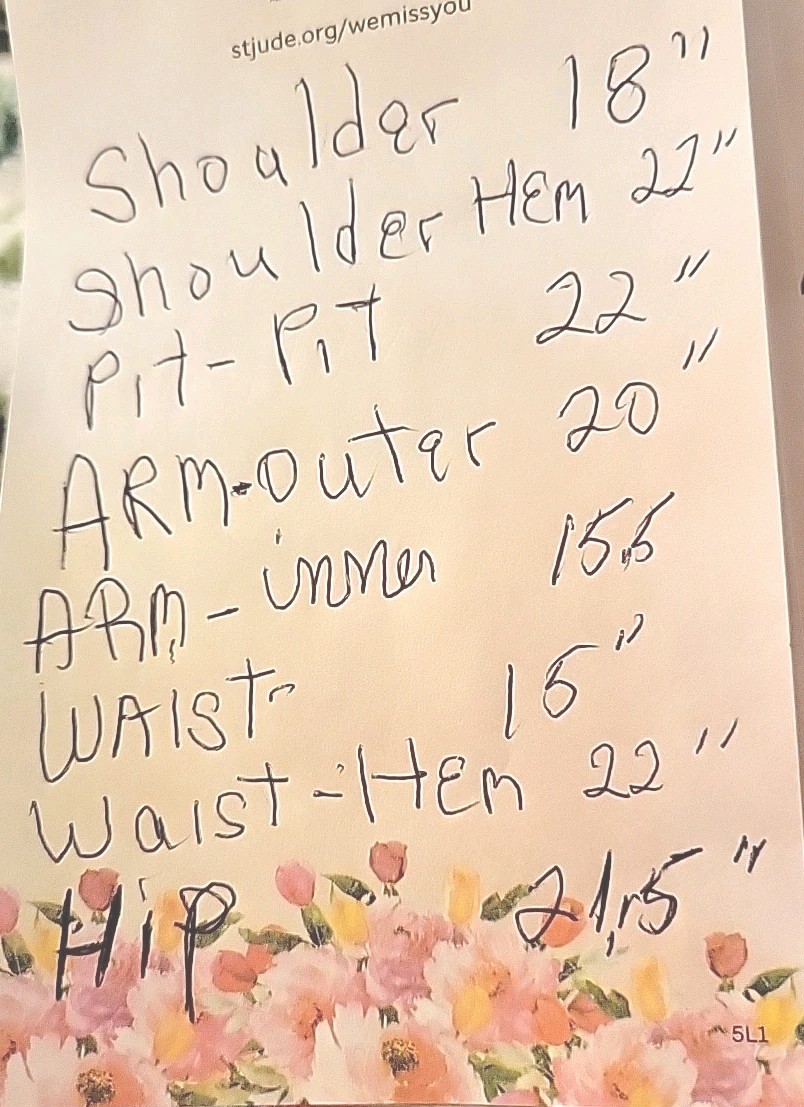 stjude.org/wemissyou
Shoulder 18"
Shoulder Hem 22"
Pit-Pit 22"
ARM-outer 20"
ARM-inner 15.5
WAIST- 16"
Waist-Hem 22"
Hip 21.5"
5L1